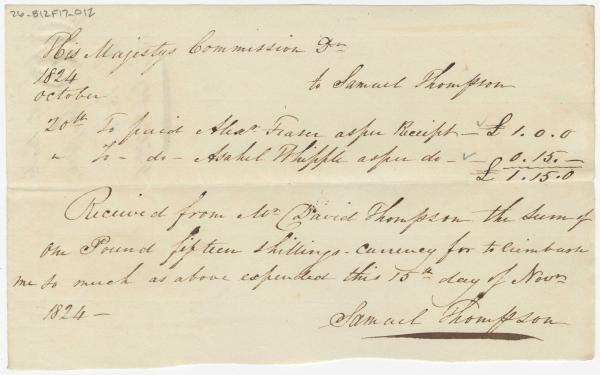 26-B12F17-012
His Majestys Commission Dr
1824
to Samuel Thompson
October
20th To paid Alexr Fraser as per Receipt – £ 1.0.0
" To – do – Asahel Whipple as per do – 0.15.–
£ 1.15.0
Received from Mr David Thompson the sum of
one Pound fifteen shillings currency for to reimburse
me so much as above expended this 15th day of Novr
1824 –
Samuel Thompson